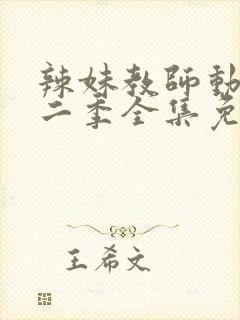 辣妹教師動
二季全集免
王希文